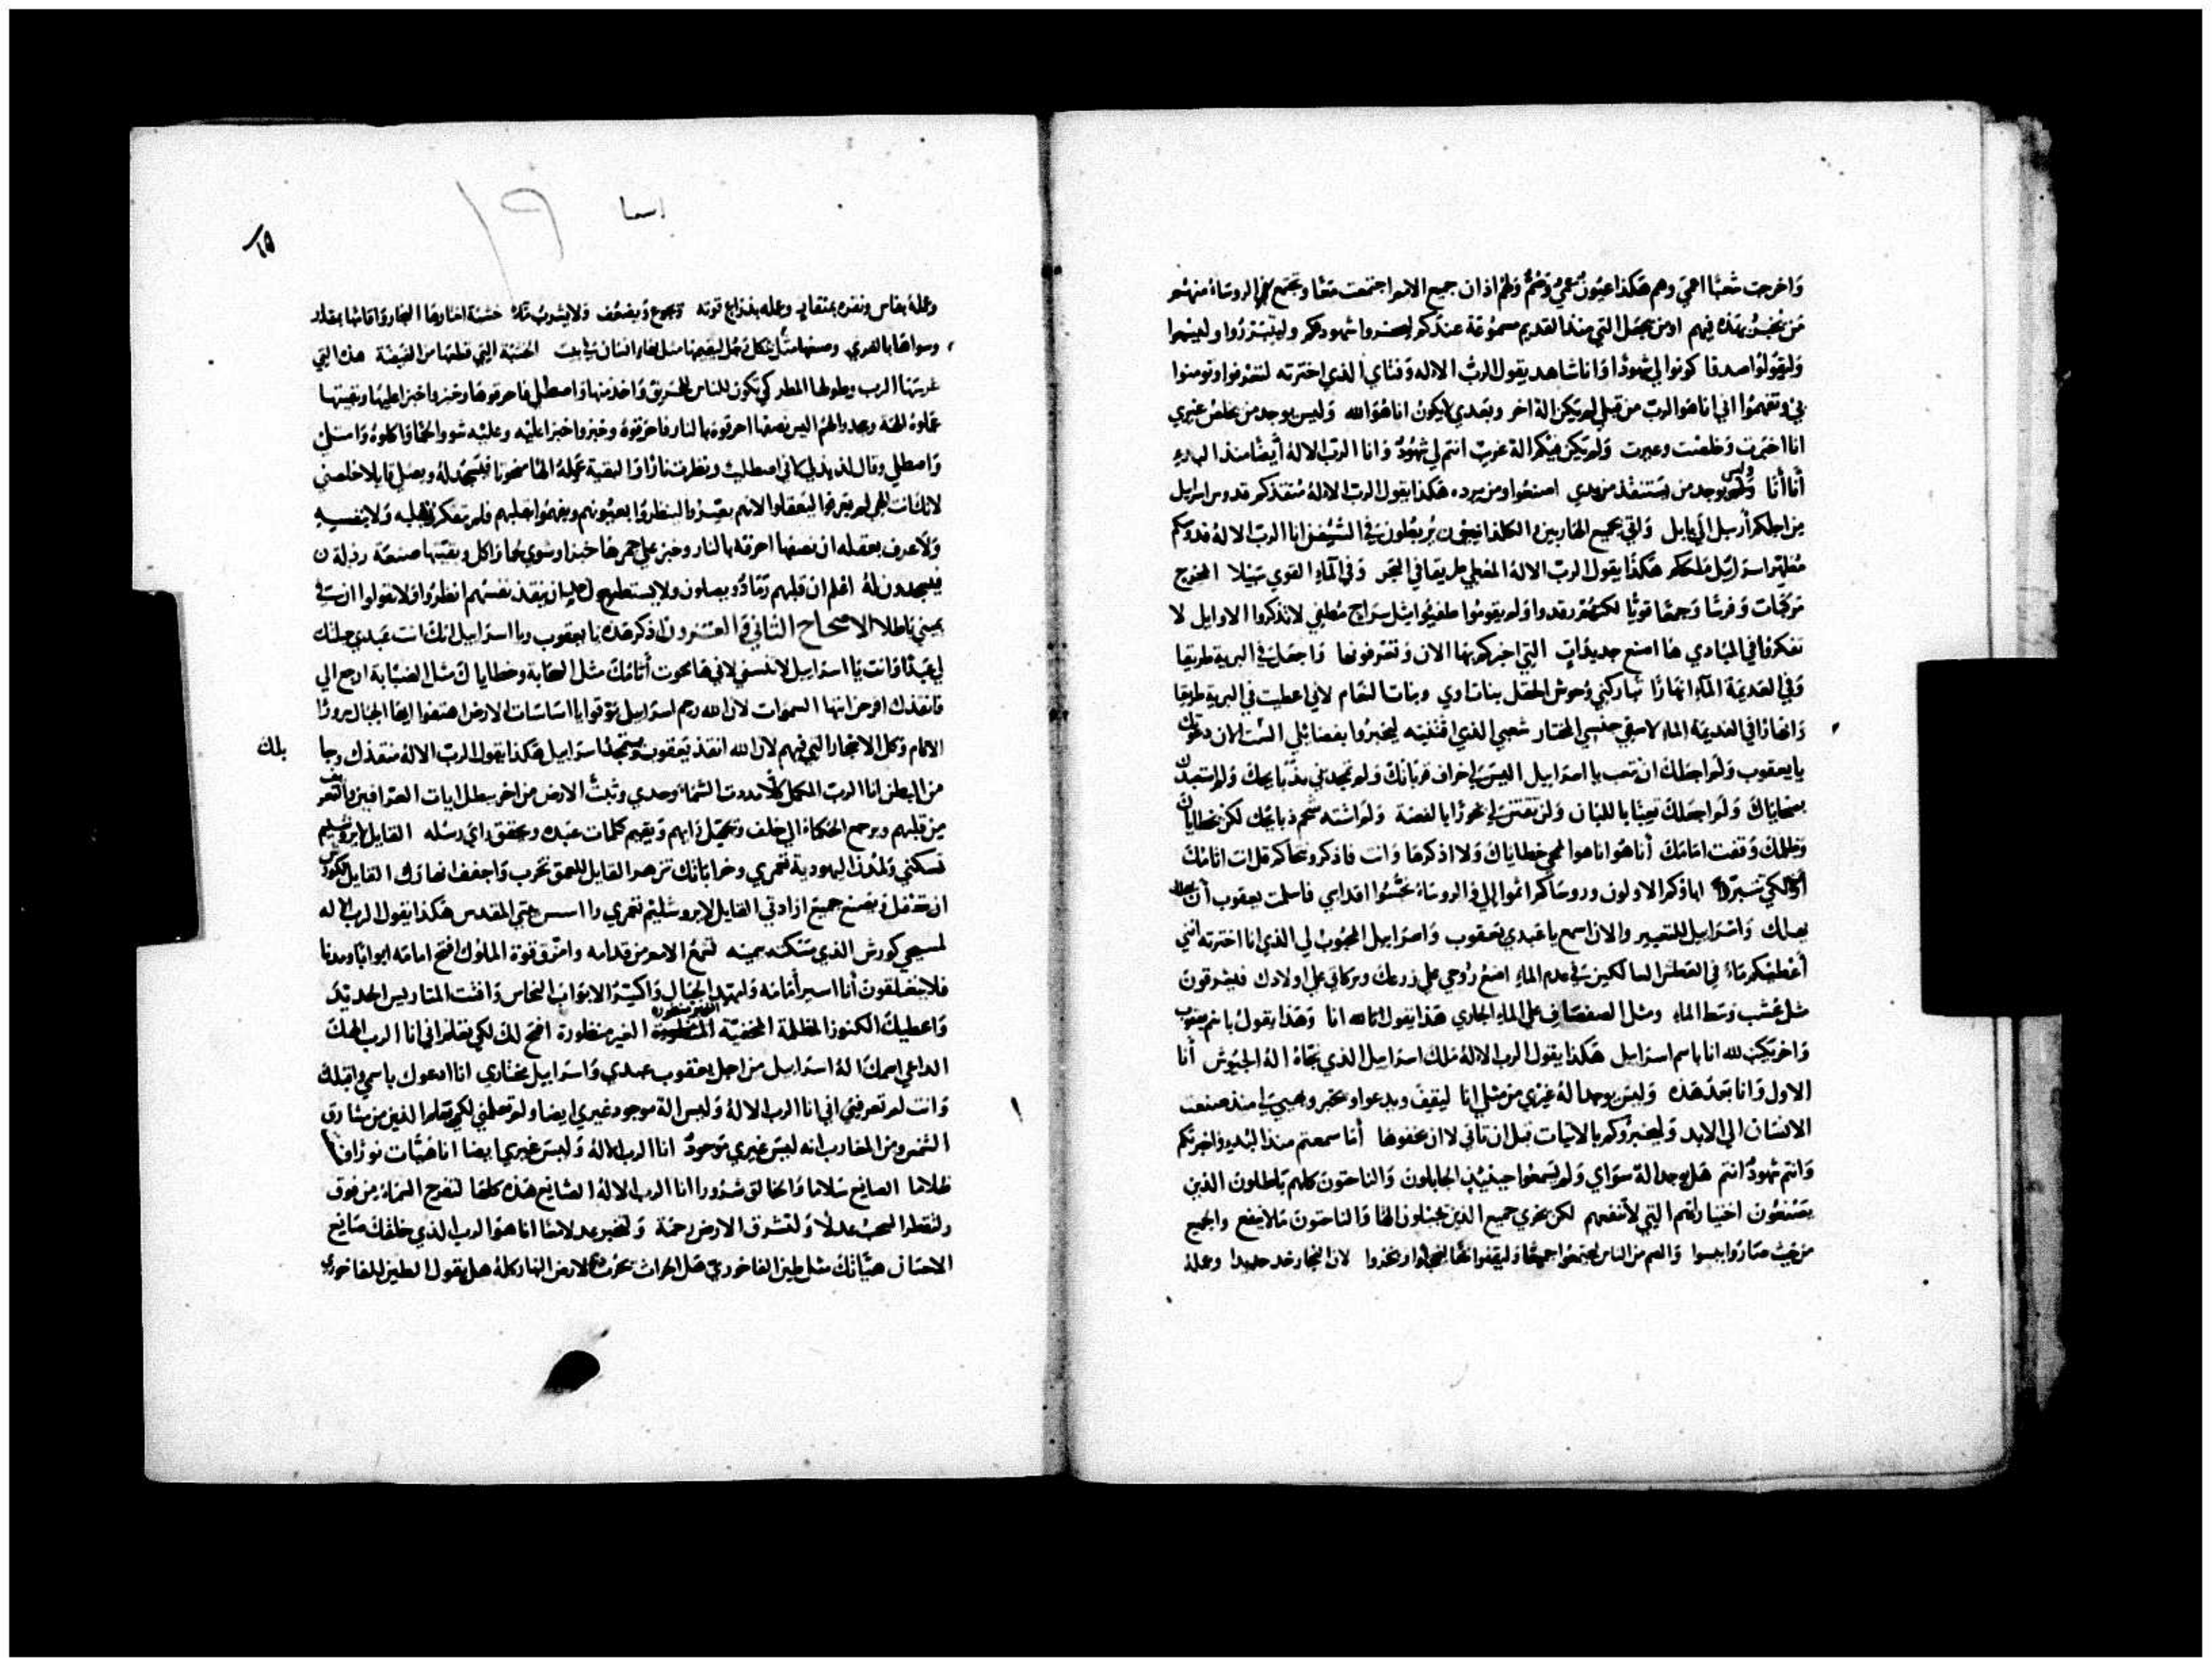 واخرجت شعبًا اعمى وهم هكذا عيون عمي وصم ولهم اذان جميع الامم اجتمعت معًا وتجتمع الروساء منهم
من يخبر بهذه فيهم او من يجعل التي منذ القديم مسموعة عندكم ليحضروا شهودهم وليتبرروا وليسمعوا
وليقولوا صدقا كونوا لي شهودًا وانا شاهد يقول الرب الاله وفتاي الذي اخترته لتعرفوا وتومنوا
بي وتفهموا اني انا هو الرب من قبلي لم يكن اله اخر وبعدي لا يكون انا هو الله وليس يوجد من يخلص غيري
انا اخبرت وخلصت وعيرت ولم يكن فيكم اله غريب انتم لي شهود وانا الرب الاله أيضًا منذ البدء
أنا أنا وليس يوجد من يستنقذ من يدي اصنع ومن يرده هكذا يقول الرب الاله منقذكم قدوس اسرايل
من اجلكم أرسل الى بابل وانهض جميع الهاربين والكلدانيون يربطون في السفن انا الرب الاله قدوسكم
مظهر اسراييل ملككم هكذا يقول الرب الاله المعطي طريقا في البحر وفي الماء القوي سبيلا المخرج
مركبات وفرسًا وجمعًا قويًا لكنهم رقدوا ولم يقوموا طفيوا مثل سراج مطفي لا تذكروا الاوايل لا
تفكروا في المبادي ها اصنع جديدات التي اخبركم بها الان وتعرفونها واجعل في البرية طريقا
وفي العديمة الماء انهارًا تباركني وحوش الحقل بنات اوي وبنات النعام لاني اعطيت في البرية
وانهارًا في العديمة الماء لاسقي جنسي المختار شعبي الذي اقتنيته ليخبروا بفضايلي
يا يعقوب ولم اجعلك ان تتعب يا اسراييل اليس لي خراف قربانك ولم تمجدني بذبايحك
بضحاياك ولم اجعلك تعبًا باللبان ولن تقتني لي بخورًا بالفضة ولم اشته شحم ذبايحك لكن بخطاياك
وبظلمك وقفت امامك أنا هو انا هو الممحي خطاياك ولا اذكرها وانت فاذكر ونتحاكم قل انت اثامك
أولًا لكي تتبرر اباوكم الاولون وروساكم اثموا الي والروساء نجسوا اقداسي فاسلمت يعقوب
واسراييل للتعيير والان اسمع يا عبدي يعقوب واسراييل المحبوب لي الذي انا اخترته
أعطيكم ماء في العطش السالكين في عدم الماء اضع روحي على زرعك وبركاتي على اولادك فيشرقون
مثل عشب وسط الماء ومثل الصفصاف على الماء الجاري هذا يقول لله انا وهذا يقول باسم يعقوب
واخر يكتب لله انا باسم اسراييل هكذا يقول الرب الاله ملك اسراييل الذي نجاه اله الجيوش أنا
الاول وانا بعد هذه وليس يوجد اله غيري من مثلي انا ليقف ويدعو او يخبر ويهيئ لي منذ صنعت
الانسان الى الابد وليخبروكم بالاتيات قبل ان تاتي لا تخفوها أما سمعتم منذ البدء واخبرتكم
وانتم شهود انتم هل يوجد اله سواي ولم يسمعوا حينيذٍ الجابلون والناحتون كلهم باطلون الذين
يصنعون التي لا تنفعهم لكن يخزي جميع الذين يجبلون الها والناحتون ما لا ينفع والجميع
من حيث صاروا يبسوا والصم من الناس ليجتمعوا جميعًا وليقفوا معًا وليخزوا لان النجار حد حديدا وعمله

اسعيا ١٩
وعمله بفاس ونقره بمثقاب وعمله بذراع قوته ويجوع ويضعف ولا يشرب ماء خشبة اختارها النجار واقامها بمقدار
وسواها بالغري وصنعها مثل شكل رجل ليقيمها مثل بهاء انسان في بيت الخشبة التي قطعها من الغيضة هذه التي
غرسها الرب وطولها المطر كي تكون للناس للحريق واخذ منها واصطلى فاحرقوها وخبزوا خبزا عليها وبقيتها
عملوه الهة وسجدوا لهم اليس نصفها احرقوه بالنار فاحرقوه وخبزوا خبزا عليه وعليه شووا لحمًا واكلوه وامتلى
واصطلى وقال لذيذ لي لاني اصطليت ونظرت نارًا والبقية عمله الهًا منحوتا فيسجد له ويصلي قايلا خلصني
لانك انت الهي لم يعرفوا ليتعقلوا لانهم لينظروا بعيونهم ويفهموا بقلبهم فلم يتفكر بقلبه ولا بنفسه
ولا عرف بعقله ان نصفها احرقه بالنار وخبز على جمرها خبزا وشوى لحما واكل وبقيتها صنعه رذلة
فيسجدون له اعلم ان قلبهم رماد ويضلون ولا يستطيع ان ينقذ نفسه انظروا ولا تقولوا ان في
يميني باطلا الاصحاح الثاني والعشرون اذكر هذه يا يعقوب ويا اسراييل انك انت عبدي جبلتك
لي عبدًا وانت يا اسراييل لا تنسني لاني ها محوت أثامك مثل السحابة وخطاياك مثل الضبابة ارجع الي
فانقذك افرحن ايتها السموات لان الله رحم اسراييل بوقوا يا اساسات الارض اهتفوا ايها الجبال سرورًا
الاكام وكل الاشجار التي فيهم لان الله انقذ يعقوب ويتمجد اسراييل هكذا يقول الرب الاله منقذك وجابلك
من البطن انا الرب المكمل كلها مددت السماء وحدي وثبتُّ الارض من اخر يبطل ايات العرافين
من قلبهم ويرجع الحكماء الى خلف ويجهل رايهم ويقيم كلمات عبده ويحقق راي رسله القايل لايروشليم
تسكني ولمدن اليهودية تعمري وخراباتك تزهر القايل للعمق تخرب واجفف انهارك القايل لكورش
ان تعقل وتصنع جميع ارادتي القايل لايروشليم تعمري وااسس بيتي المقدس هكذا يقول الرب الاله
لمسيحي كورش الذي مسكته بيمينه لتسمع الامم من قدامه وامزق قوة الملوك افتح امامه ابوابًا ومدنا
فلا ينغلقون أنا اسير أمامه وامهد الجبال واكسر الابواب النحاس وافتت المتاريس الحديد
واعطيك الكنوز المظلمة المخفية الغير منظورة افتح لك لكي تعلم اني انا الرب الهك
الداعي اسمك اله اسراييل من اجل يعقوب عبدي واسراييل مختاري انا ادعوك باسمي واقبلك
وانت لم تعرفني اني انا الرب الاله وليس اله موجود غيري ايضا ولم تعلمني لكي يعلم الذين من مشارق
الشمس ومن المغارب انه ليس غيري موجودٌ انا الرب الاله وليس غيري ايضا انا هيات نورًا وانا
ظلاما الصانع سلاما والخالق شرورا انا الرب الاله الصانع هذه كلها لتفرح السماء من فوق
ولتقطر السحب عدلًا ولتشرق الارض رحمة ولتخبر عدلا معا انا هو الرب الذي خلقك صانع
الاحسان هيانك مثل طين الفاخوري هل الحراث يحرث الارض النهار كله هل يقول الطين للفاخوري